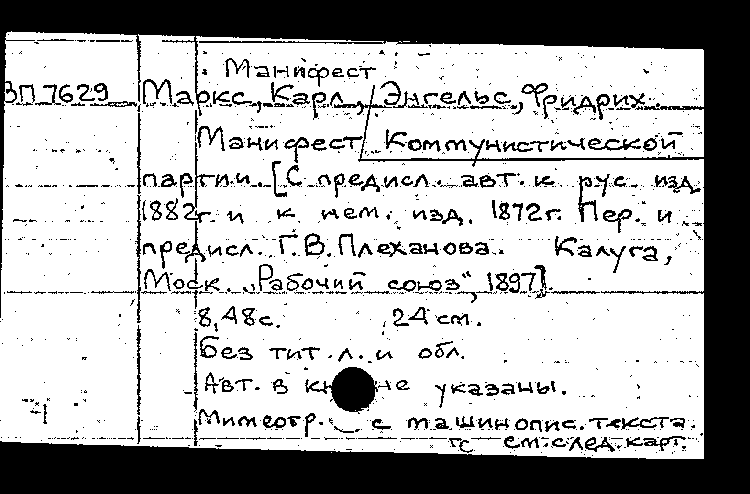 Манифест
ВП 7629 Маркс, Карл, Энгельс, Фридрих
Манифест Коммунистической
партии. [С предисл. авт. к рус. изд.
1882г. и к нем. изд. 1872г. Пер. и
предисл. Г.В. Плеханова. Калуга,
Моск. „Рабочий союз“, 1897].
8,48с. 24 см.
Без тит. л. и обл.
Авт. в не указаны.
Мимеогр. с машинопис. текста.
см. след. карт.